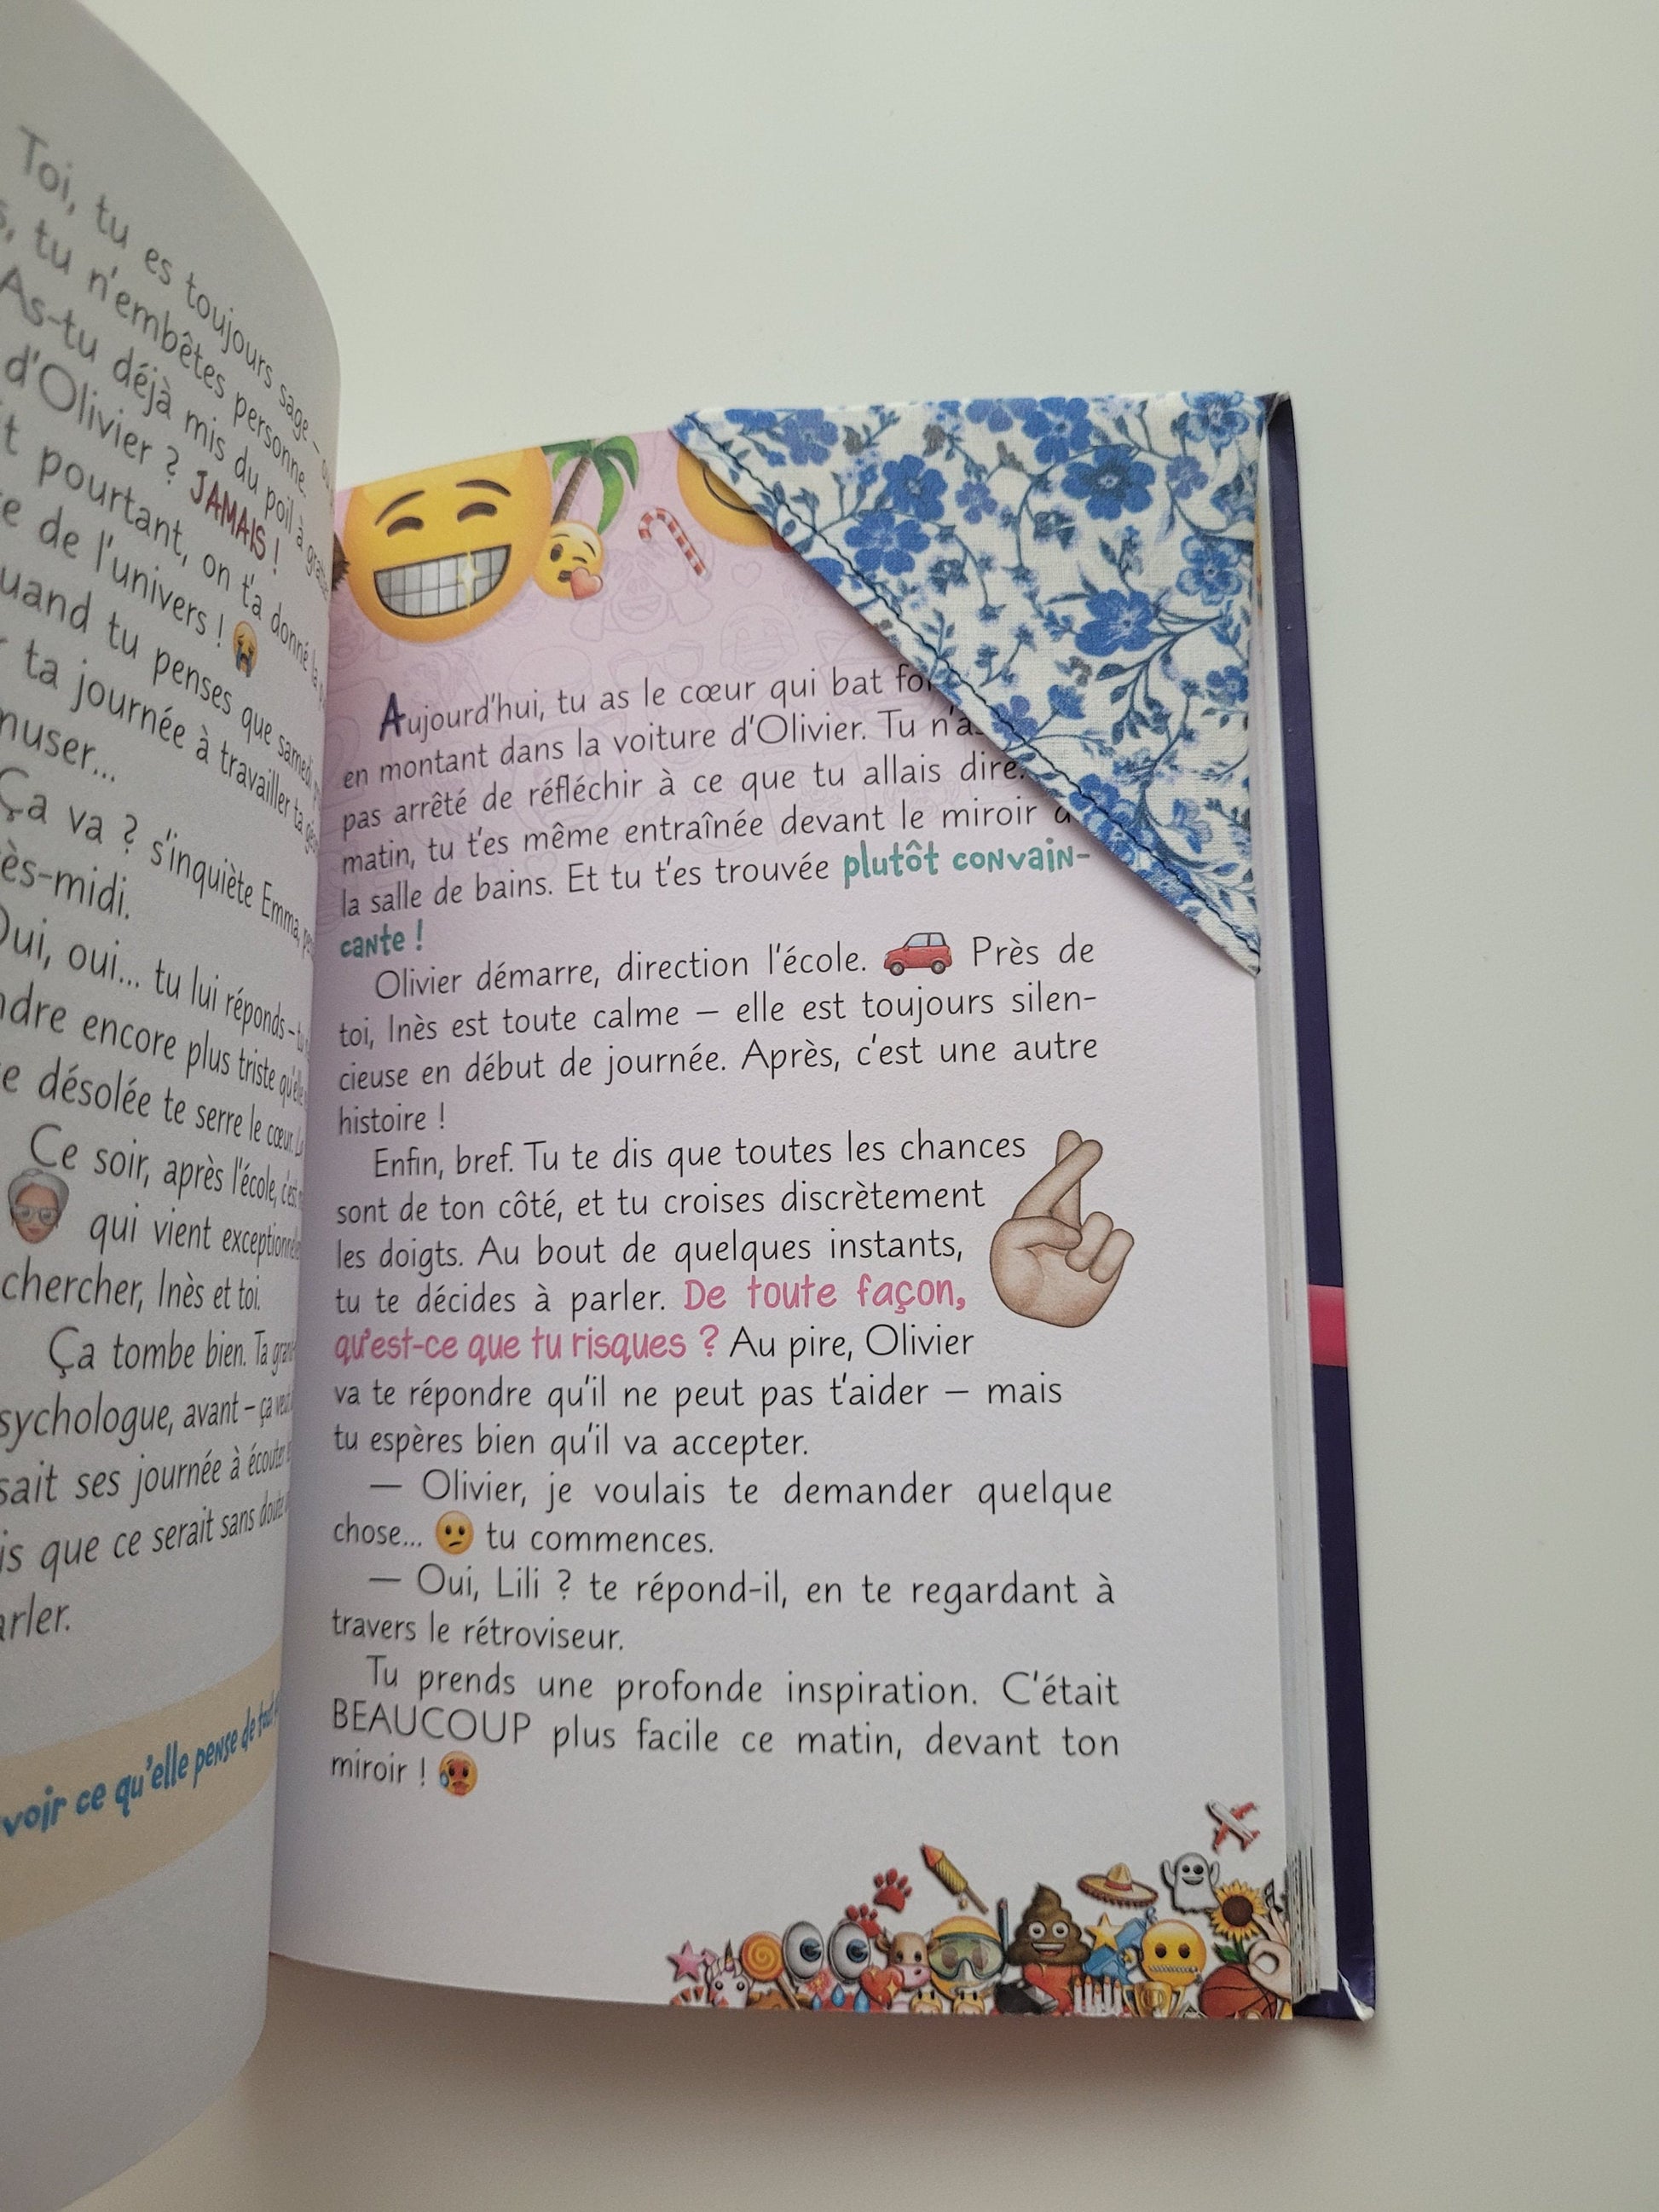 Toi, tu es toujours sage –
tu n'embêtes personne.
As-tu déjà mis du poil à
d'Olivier ? JAMAIS !
pourtant, on t'a donné
de l'univers !
tu penses que samedi
ta journée à travailler ta
Ça va ? s'inquiète Emma,
midi.
oui... tu lui réponds –
encore plus triste
désolée te serre le cœur.
Ce soir, après l'école,
qui vient
chercher, Inès et toi.
Ça tombe bien. Ta
avant –
ses journée à
que ce serait sans
voir ce qu'elle pense de
Aujourd'hui, tu as le cœur qui bat
en montant dans la voiture d'Olivier. Tu
pas arrêté de réfléchir à ce que tu allais dire.
matin, tu t'es même entraînée devant le miroir
la salle de bains. Et tu t'es trouvée plutôt convain-
cante !
Olivier démarre, direction l'école. Près de
toi, Inès est toute calme – elle est toujours silen-
cieuse en début de journée. Après, c'est une autre
histoire !
Enfin, bref. Tu te dis que toutes les chances
sont de ton côté, et tu croises discrètement
les doigts. Au bout de quelques instants,
tu te décides à parler. De toute façon,
qu'est-ce que tu risques ? Au pire, Olivier
va te répondre qu'il ne peut pas t'aider – mais
tu espères bien qu'il va accepter.
— Olivier, je voulais te demander quelque
chose... tu commences.
— Oui, Lili ? te répond-il, en te regardant à
travers le rétroviseur.
Tu prends une profonde inspiration. C'était
BEAUCOUP plus facile ce matin, devant ton
miroir !